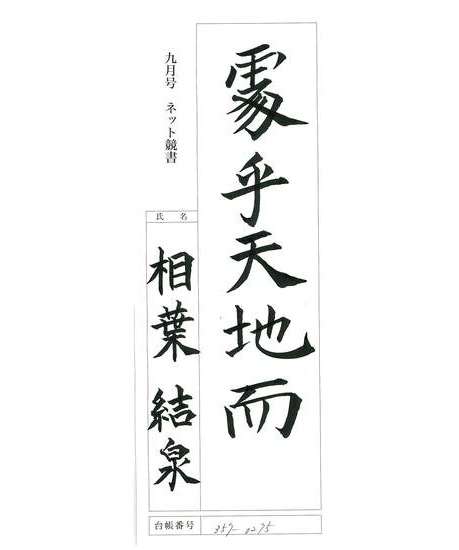 處乎天地而
九月号 ネット競書
氏 名
相葉 結泉
台帳番号 357-0275